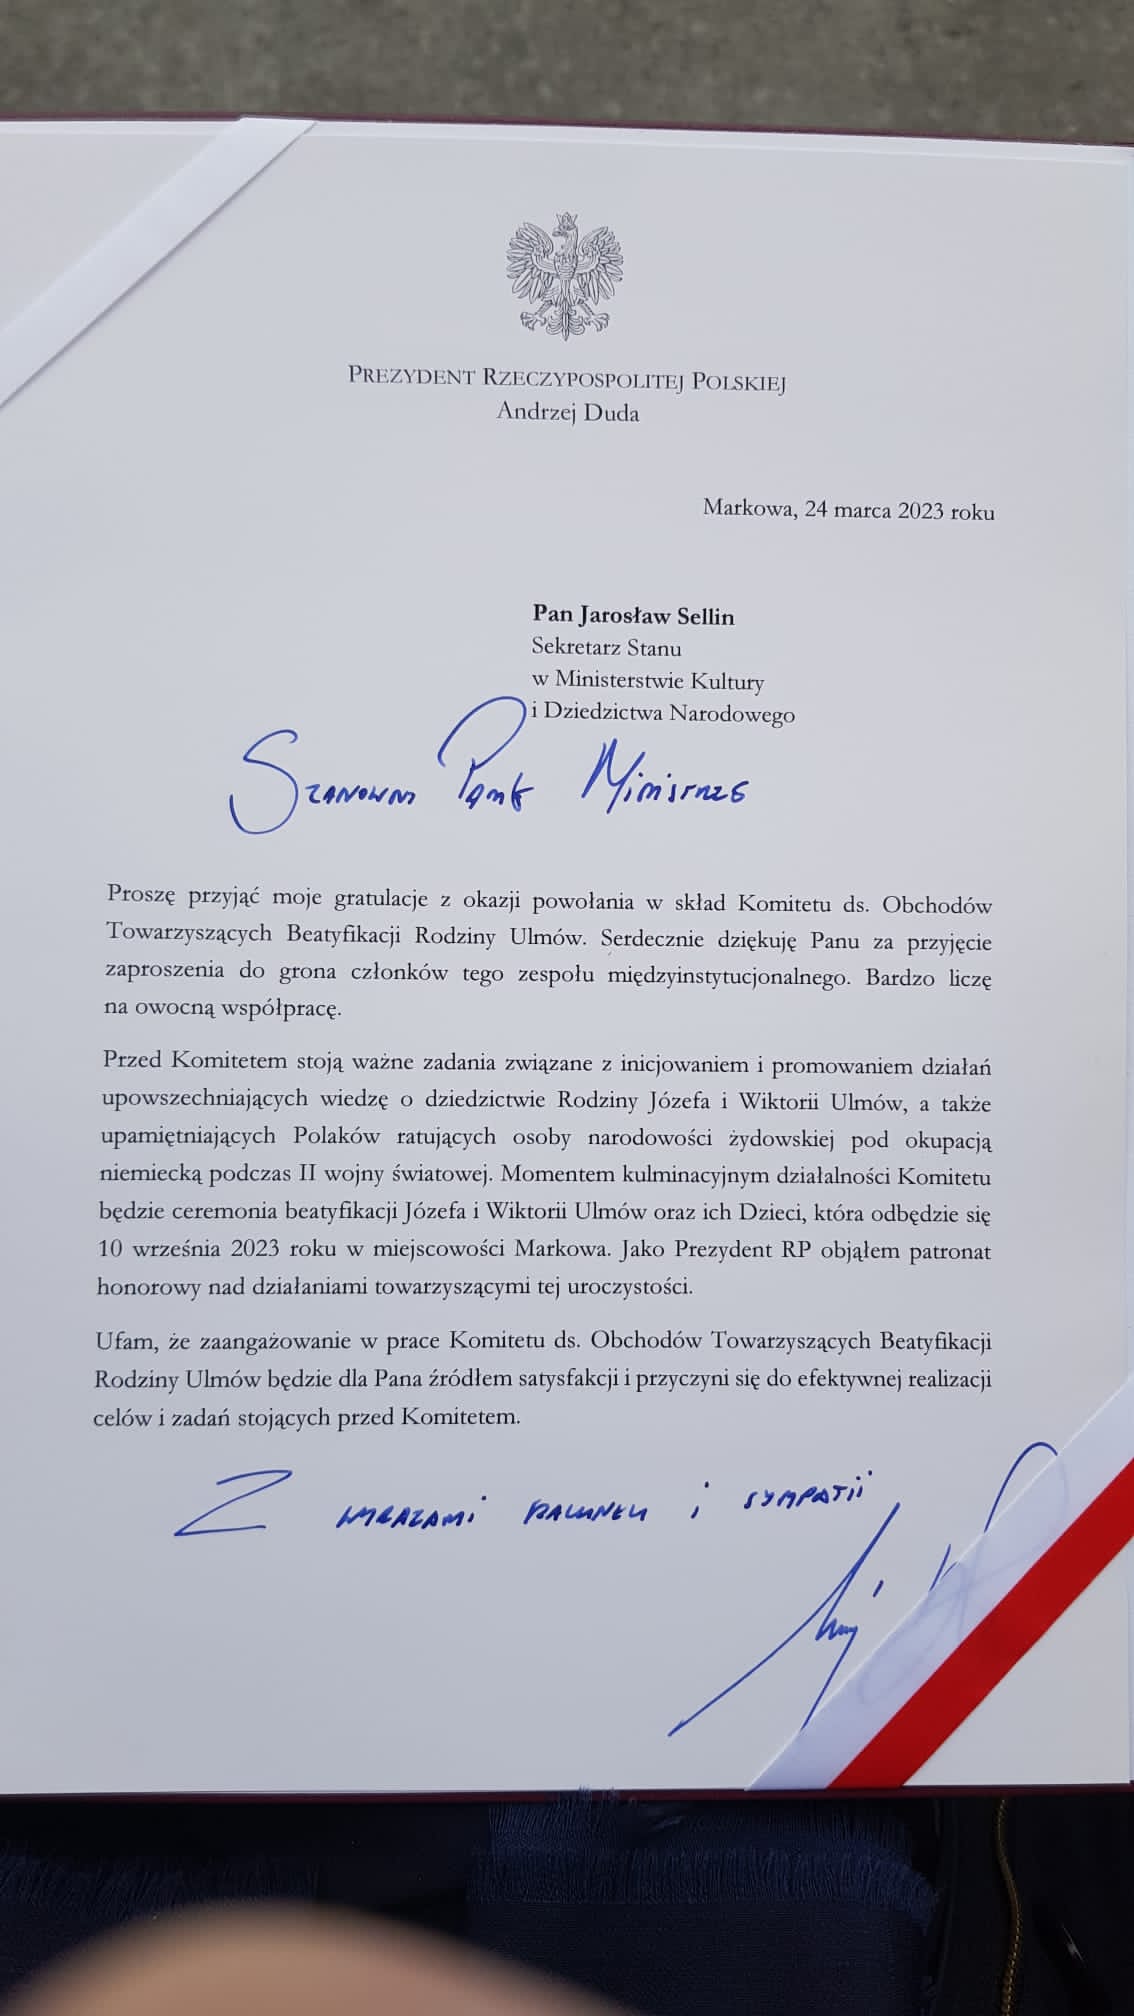 PREZYDENT RZECZYPOSPOLITEJ POLSKIEJ
Andrzej Duda
Markowa, 24 marca 2023 roku
Pan Jarosław Sellin
Sekretarz Stanu
w Ministerstwie Kultury
i Dziedzictwa Narodowego
Szanowny Panie Ministrze
Proszę przyjąć moje gratulacje z okazji powołania w skład Komitetu ds. Obchodów
Towarzyszących Beatyfikacji Rodziny Ulmów. Serdecznie dziękuję Panu za przyjęcie
zaproszenia do grona członków tego zespołu międzyinstytucjonalnego. Bardzo liczę
na owocną współpracę.
Przed Komitetem stoją ważne zadania związane z inicjowaniem i promowaniem działań
upowszechniających wiedzę o dziedzictwie Rodziny Józefa i Wiktorii Ulmów, a także
upamiętniających Polaków ratujących osoby narodowości żydowskiej pod okupacją
niemiecką podczas II wojny światowej. Momentem kulminacyjnym działalności Komitetu
będzie ceremonia beatyfikacji Józefa i Wiktorii Ulmów oraz ich Dzieci, która odbędzie się
10 września 2023 roku w miejscowości Markowa. Jako Prezydent RP objąłem patronat
honorowy nad działaniami towarzyszącymi tej uroczystości.
Ufam, że zaangażowanie w prace Komitetu ds. Obchodów Towarzyszących Beatyfikacji
Rodziny Ulmów będzie dla Pana źródłem satysfakcji i przyczyni się do efektywnej realizacji
celów i zadań stojących przed Komitetem.
Z wyrazami szacunku i sympatii